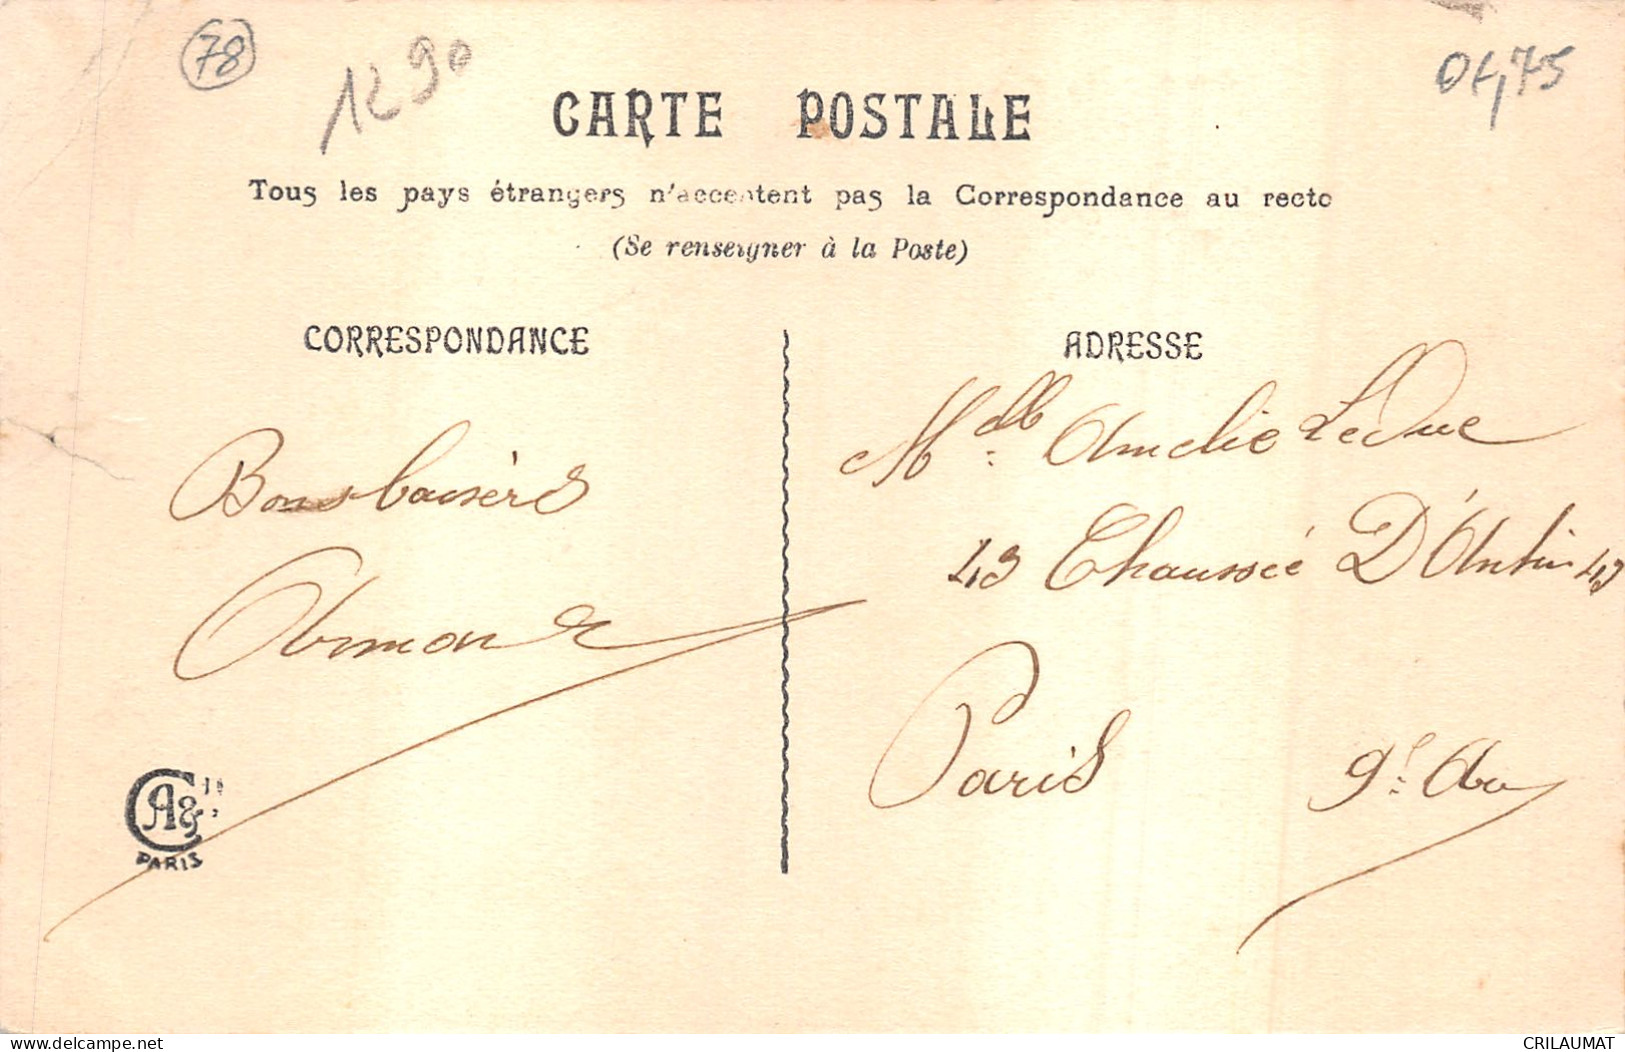 78
1290
CARTE POSTALE
Tous les pays étrangers n'acceptent pas la Correspondance au recto
(Se renseigner à la Poste)
CORRESPONDANCE
Bons baisers
Armand
A&
PARIS
ADRESSE
Mdlle Amelie LeDuc
43 Chaussée D'Antin 43
Paris
9e Arr
delcampe.net
CRILAUMAT